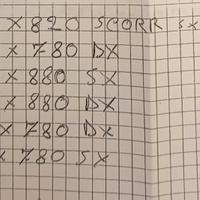 x 820 SCORR SX
x 780 DX
x 880 SX
x 880 DX
x 780 DX
x 780 SX